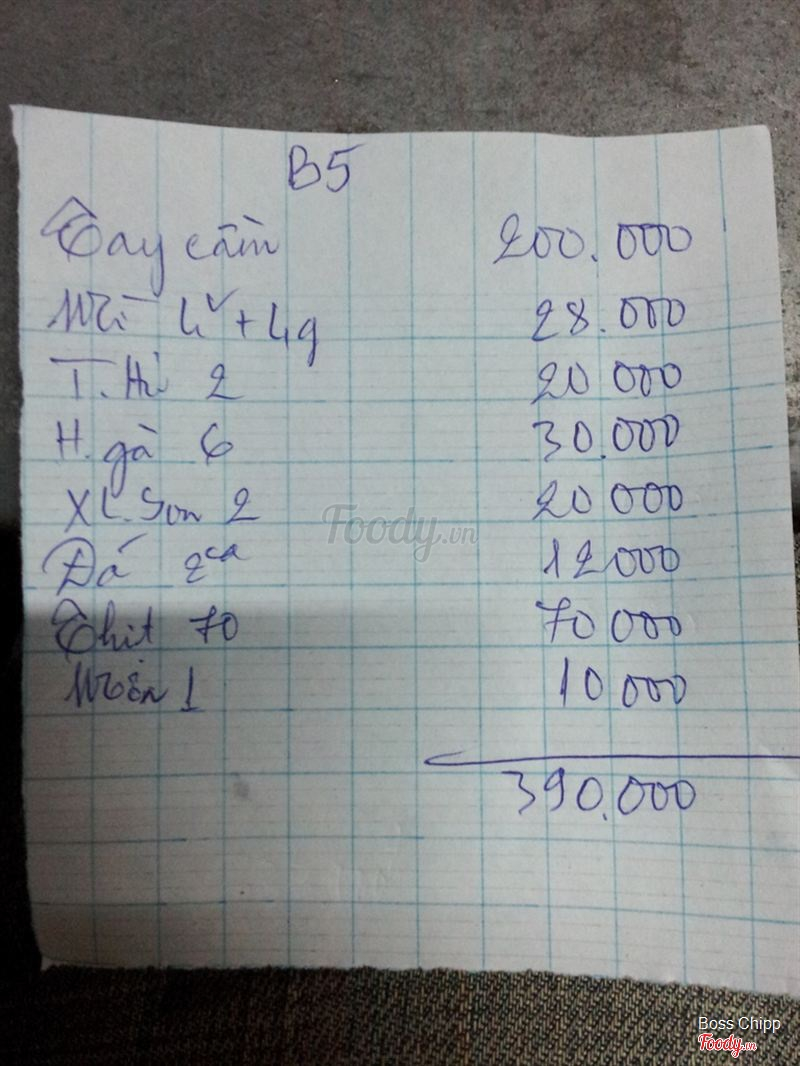 B5
Tay cầm 200.000
Mì 4v + 4g 28.000
T. Hủ 2 20 000
H. gà 6 30.000
XL. Son 2 20 000
Đá 2ca 12000
Thịt 70 70 000
1 10 000
390.000
Foody.vn
Boss Chipp
Foody.vn